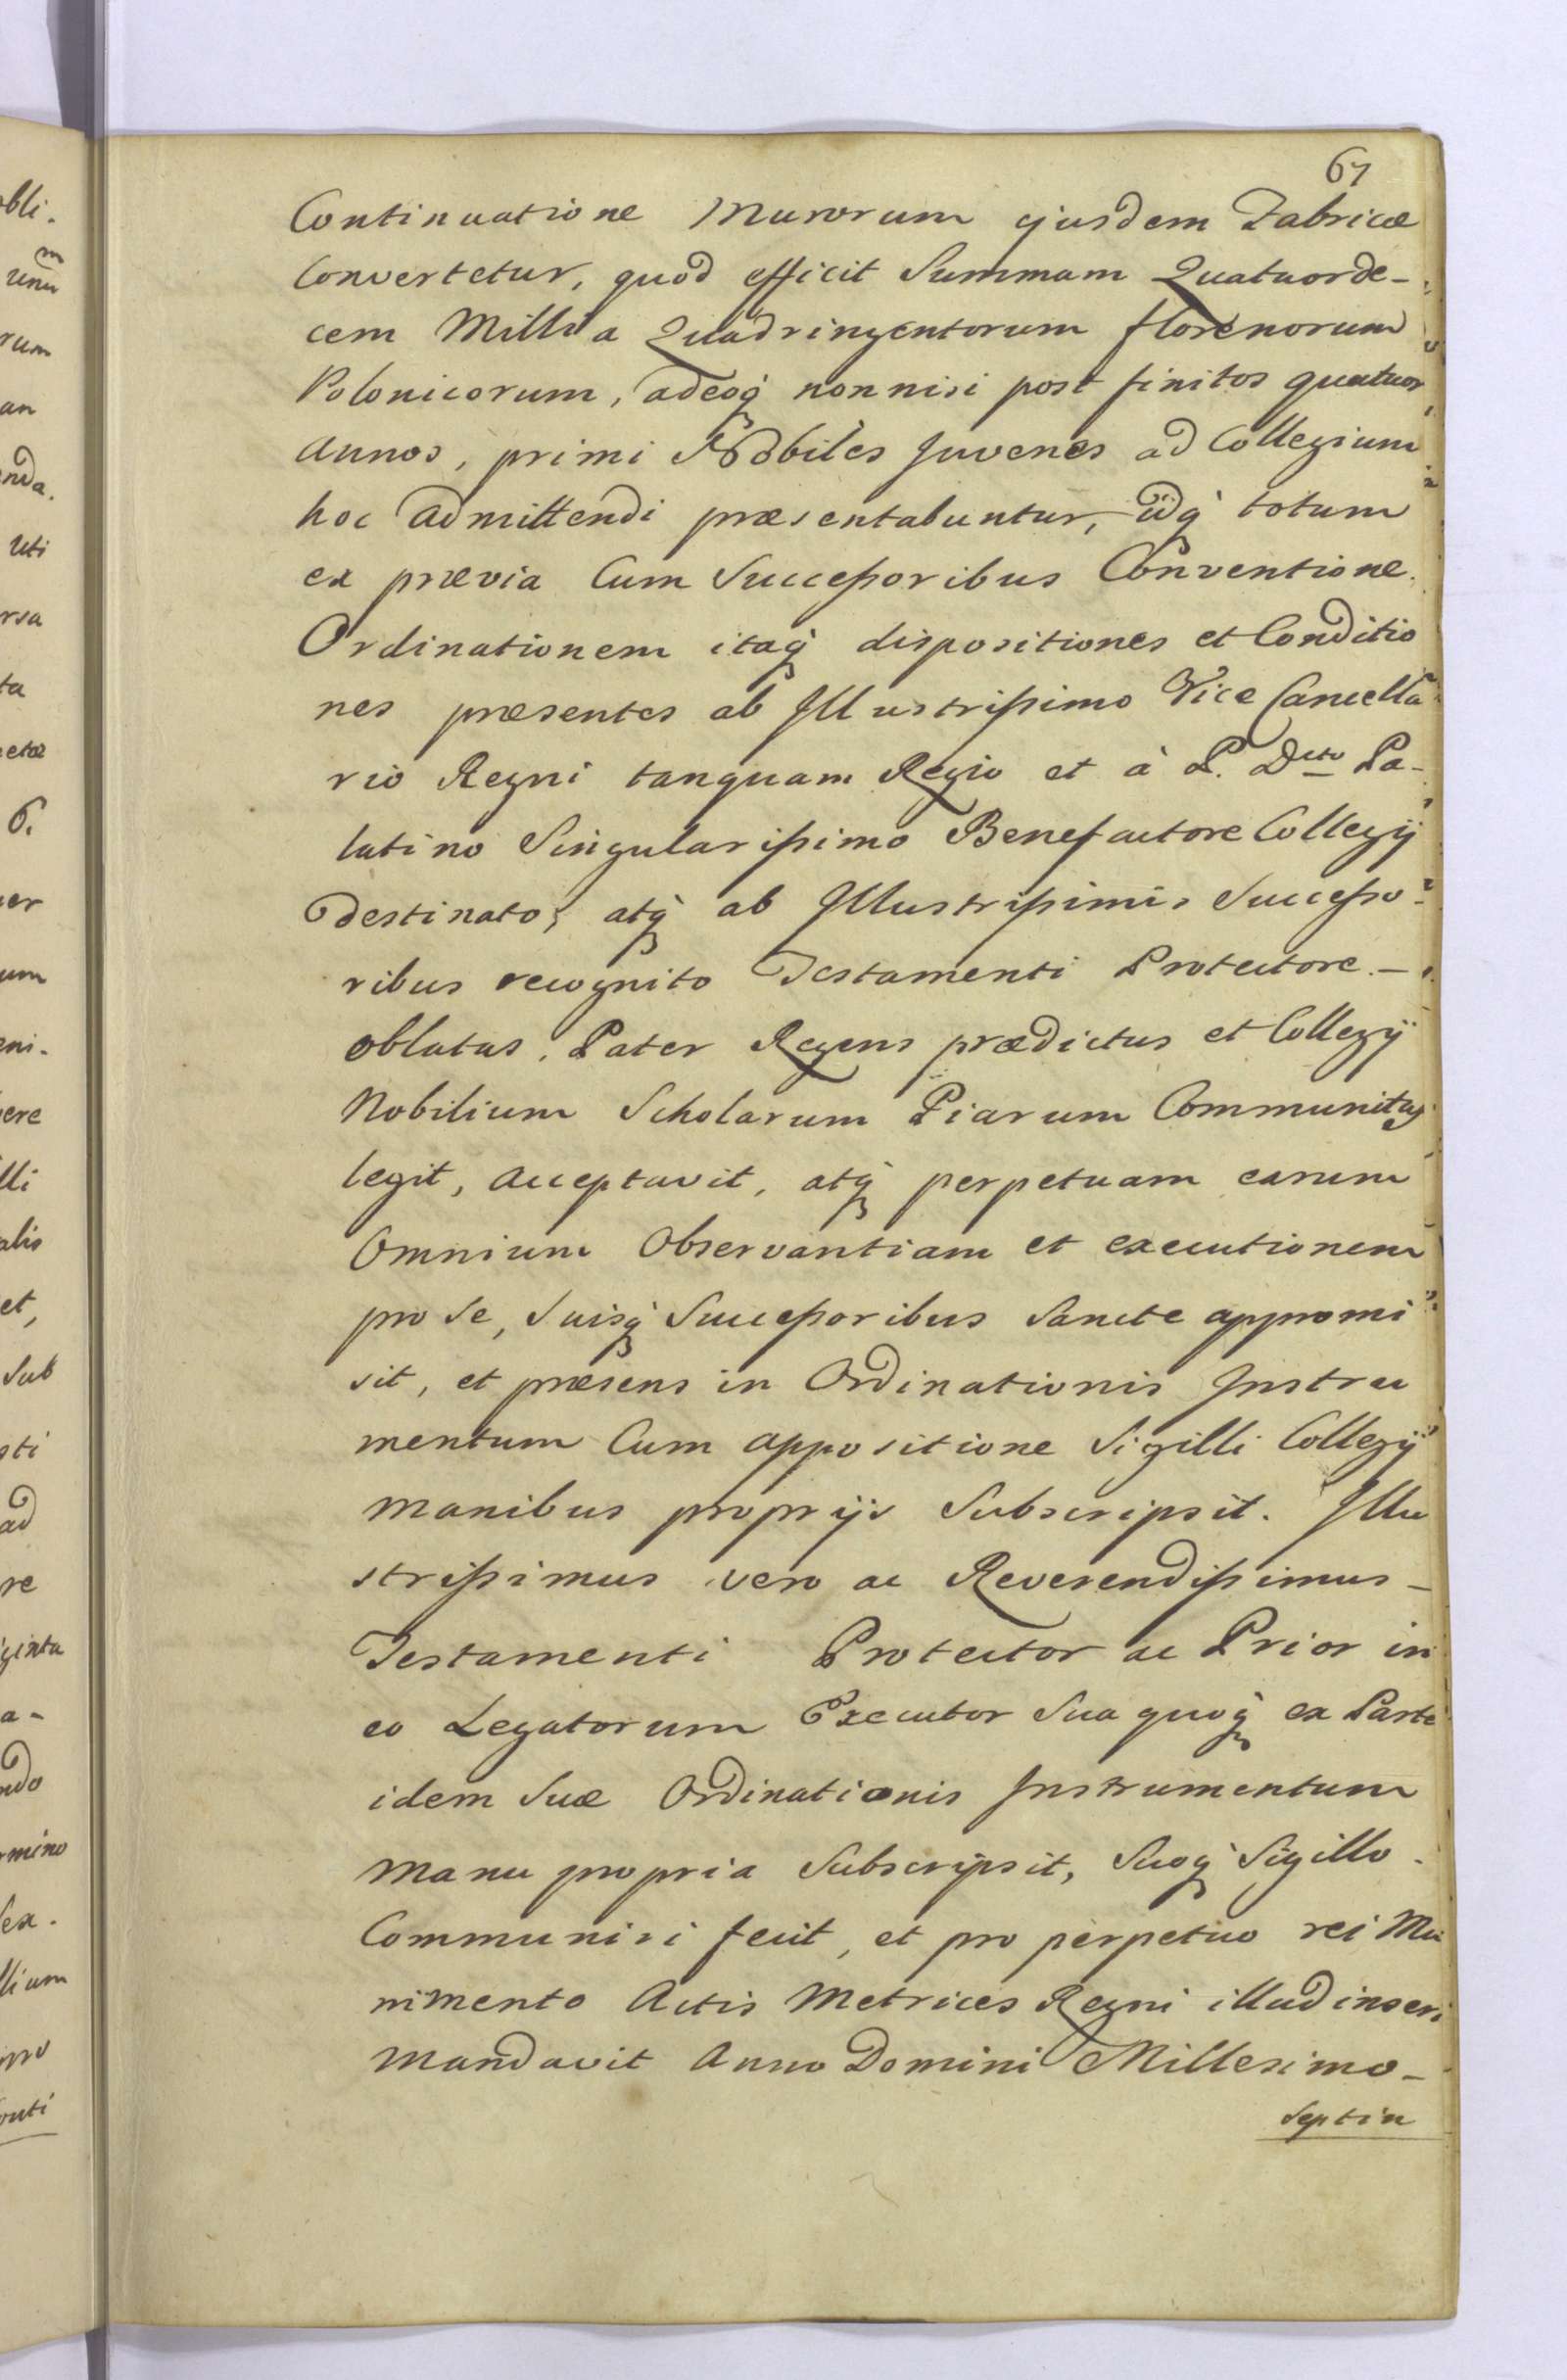 67
Continuatione Murorum ejusdem Fabricæ
Convertetur, quod efficit Summam Quatuorde-
cem Millia Quadringentorum florenorum
Polonicorum, adeoq́ nonnisi post finitos quatuor
annos, primi Nobiles Juvenes ad Collegium
hoc admittendi præsentabuntur, idq́ totum
ex prævia Cum Succeßoribus Conventione.
Ordinationem itaq́ dispositiones et Conditio
nes præsentes ab Illustrißimo Vice Cancella
rio Regni tanquam Regio et à P. Dcto Pa-
latino Singularißimo Benefactore Collegij
destinato, atq́ ab Illustrißimis Succeßo-
ribus recognito Testamenti Protectore -
oblatas, Pater Regens prædictus et Collegij
Nobilium Scholarum Piarum Communitas
legit, acceptavit, atq́ perpetuam earum
Omnium Observantiam et executionem
pro se, Suisq́ Succeßoribus Sancte appromi
sit, et præsens in Ordinationis Instru
mentum Cum appositione Sigilli Collegij
manibus proprijs Subscripsit. Illu
strißimus vero ac Reverendißimus -
Testamenti Protector ac Prior in
eo Legatorum Executor Sua quoq́ ex Parte
idem Suæ Ordinationis Instrumentum
manu propria Subscripsit, Suoq́ Sigillo
Communiri fecit, et pro perpetuo rei Mu
nimento Actis Metrices Regni illud inseri
mandavit Anno Domini Millesimo -
Septin